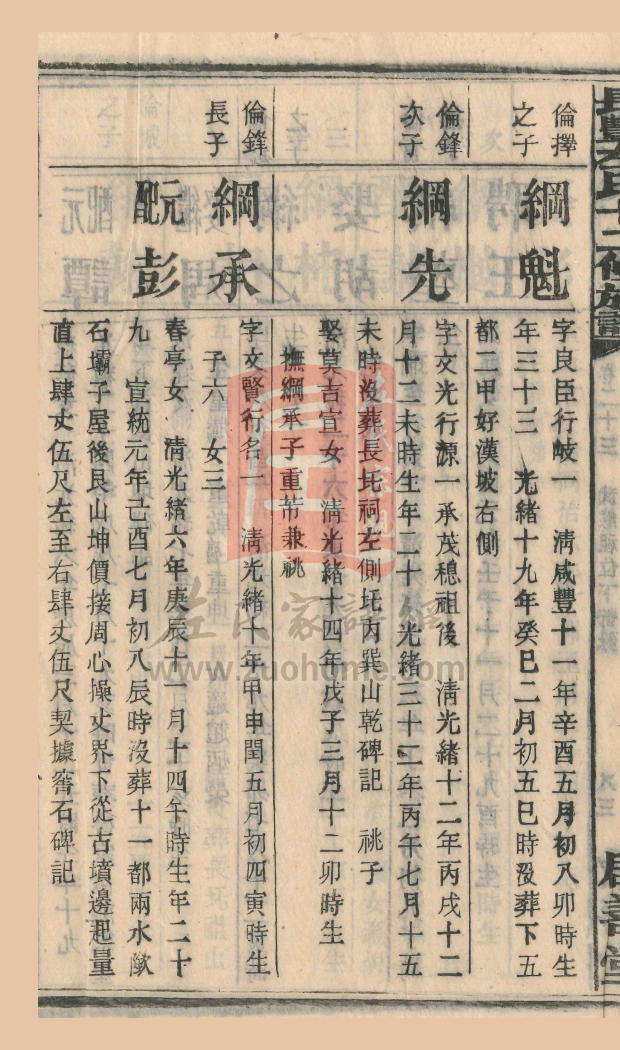 倫擇
之子
綱魁
字良臣行岐一 清咸豐十一年辛酉五月初八卯時生
年三十三 光緒十九年癸巳二月初五巳時沒葬下五
都二甲好漢坡右側
倫鋒
次子
綱先
字文光行源一承茂穏祖後 清光緒十二年丙戌十二
月十二未時生年二十一光緒三十二年丙午七月十五
未時沒葬長圫祠左側圫內巽山乾碑記 祧子
娶莫吉宣女 清光緒十四年戊子三月十二卯時生
撫綱承子重芾兼祧
倫鋒
長子
綱承
字文賢行名一 清光緒十年甲申閏五月初四寅時生
子六 女三
元配
彭
春亭女 清光緒六年庚辰十一月十四午時生年二十
九 宣統元年己酉七月初八辰時沒葬十一都兩水歟
石壩子屋後艮山坤價接周心操丈界下從古墳邊起量
直上肆丈伍尺左至右肆丈伍尺契據窖石碑記
氏十二修族譜
善堂
左氏家譜網
www.zuohome.com